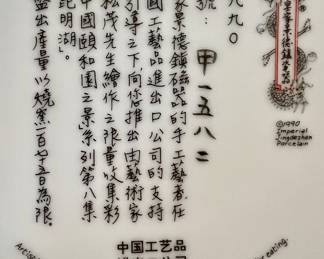 九九〇
號: 甲一五八二
家景德鎮磁器的手工藝者在
國工藝品進出口公司的支持
引導之下,向您推出由藝術家
松茂先生繪作之限量收集彩
中國頤和園之景系列第八集
昆明湖。
盤出産量以燒窯一百七十五日為限.
©1990
Imperial
Jingdezhen
Porcelain
中国工艺品
eating.